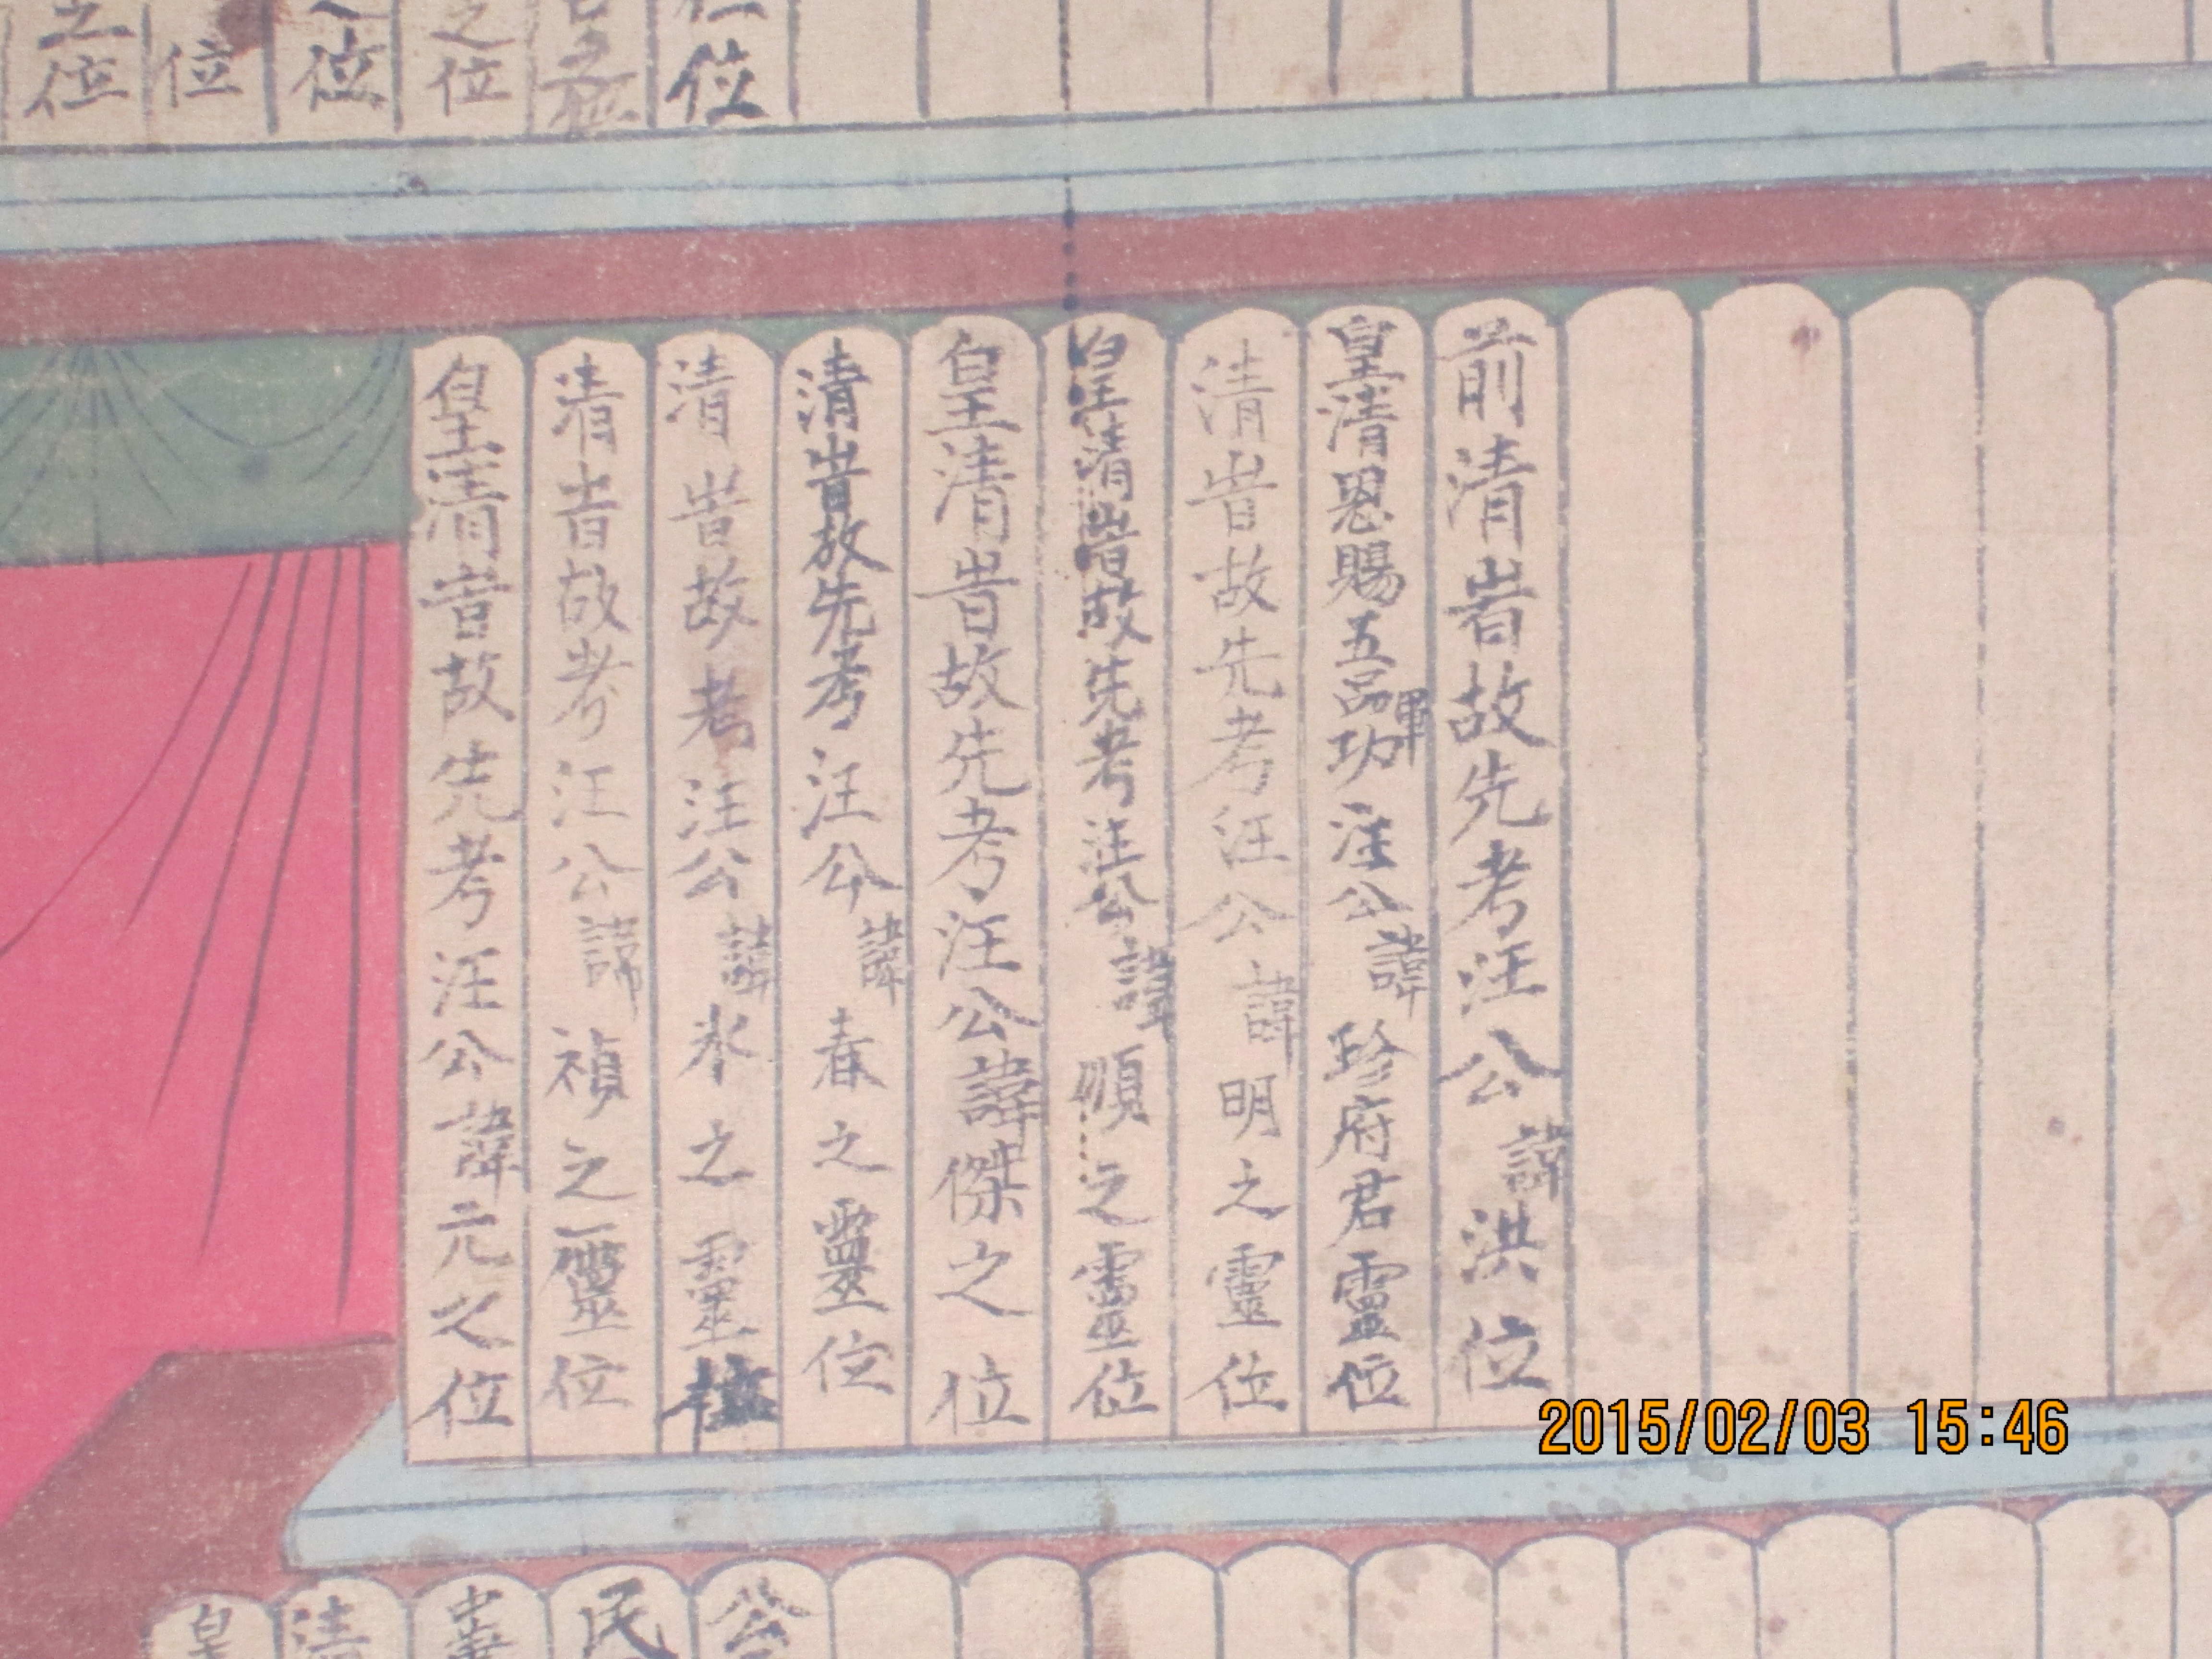 位
之位
位
位
之位
前清旹故先考汪公諱洪位
皇清恩賜五品軍功汪公諱珍府君靈位
清旹故先考汪公諱明之靈位
皇清旹故先考汪公諱順之靈位
皇清旹故先考汪公諱傑之位
清旹故先考汪公諱春之靈位
清旹故考汪公諱之靈位
清旹故考汪公諱禎之靈位
皇清旹故先考汪公諱元之位
公
民
中華
清
皇
2015/02/03 15:46